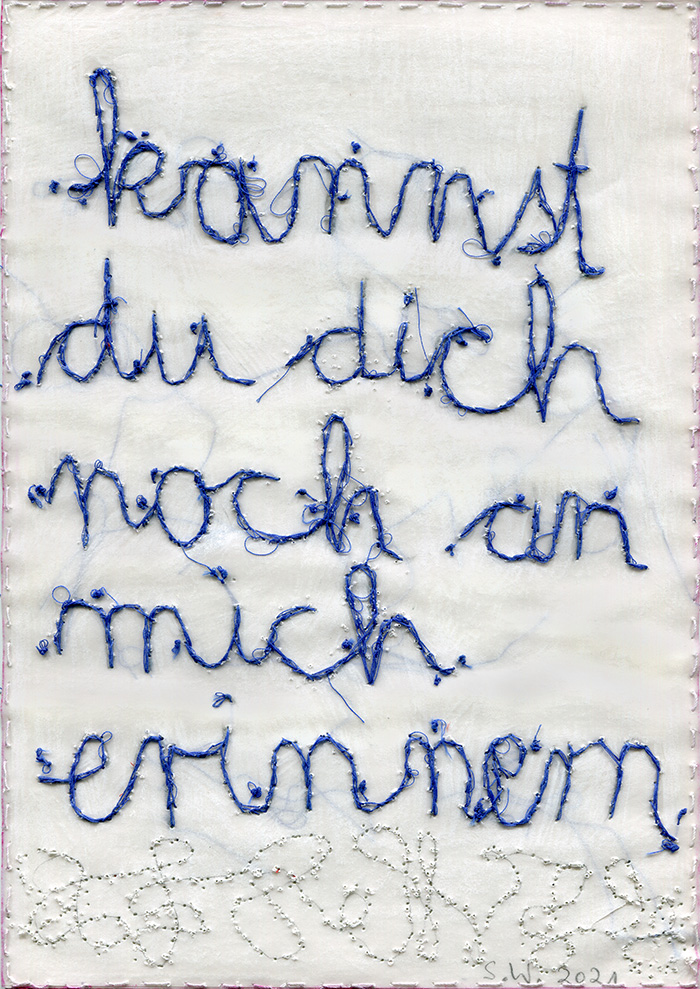 kannst
du dich
noch an
mich
erinnern
S.W. 2021